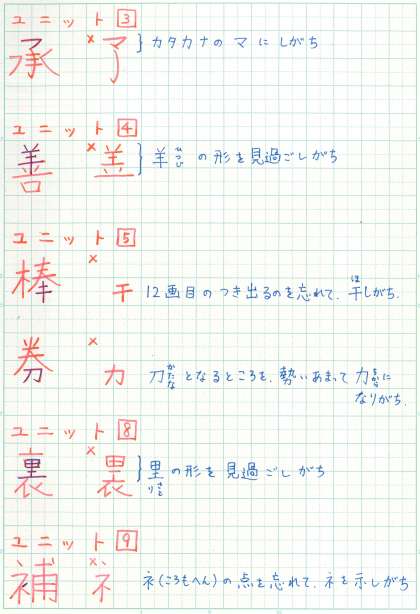 ユニット 3
承 × マ } カタカナの マ に しがち
ユニット 4
善 × } 羊 ひつじ の形を見過ごしがち
ユニット 5
棒 × 干 12画目のつき出るのを忘れて、干しがち。
ほ
券 × 力 刀 かたな となるところを、勢いあまって力 ちから に
なりがち。
ユニット 8
裏 × } 里 の形を見過ごしがち
りさと
ユニット 9
補 × ネ ネ(ころもへん)の点を忘れて、ネを示しがち